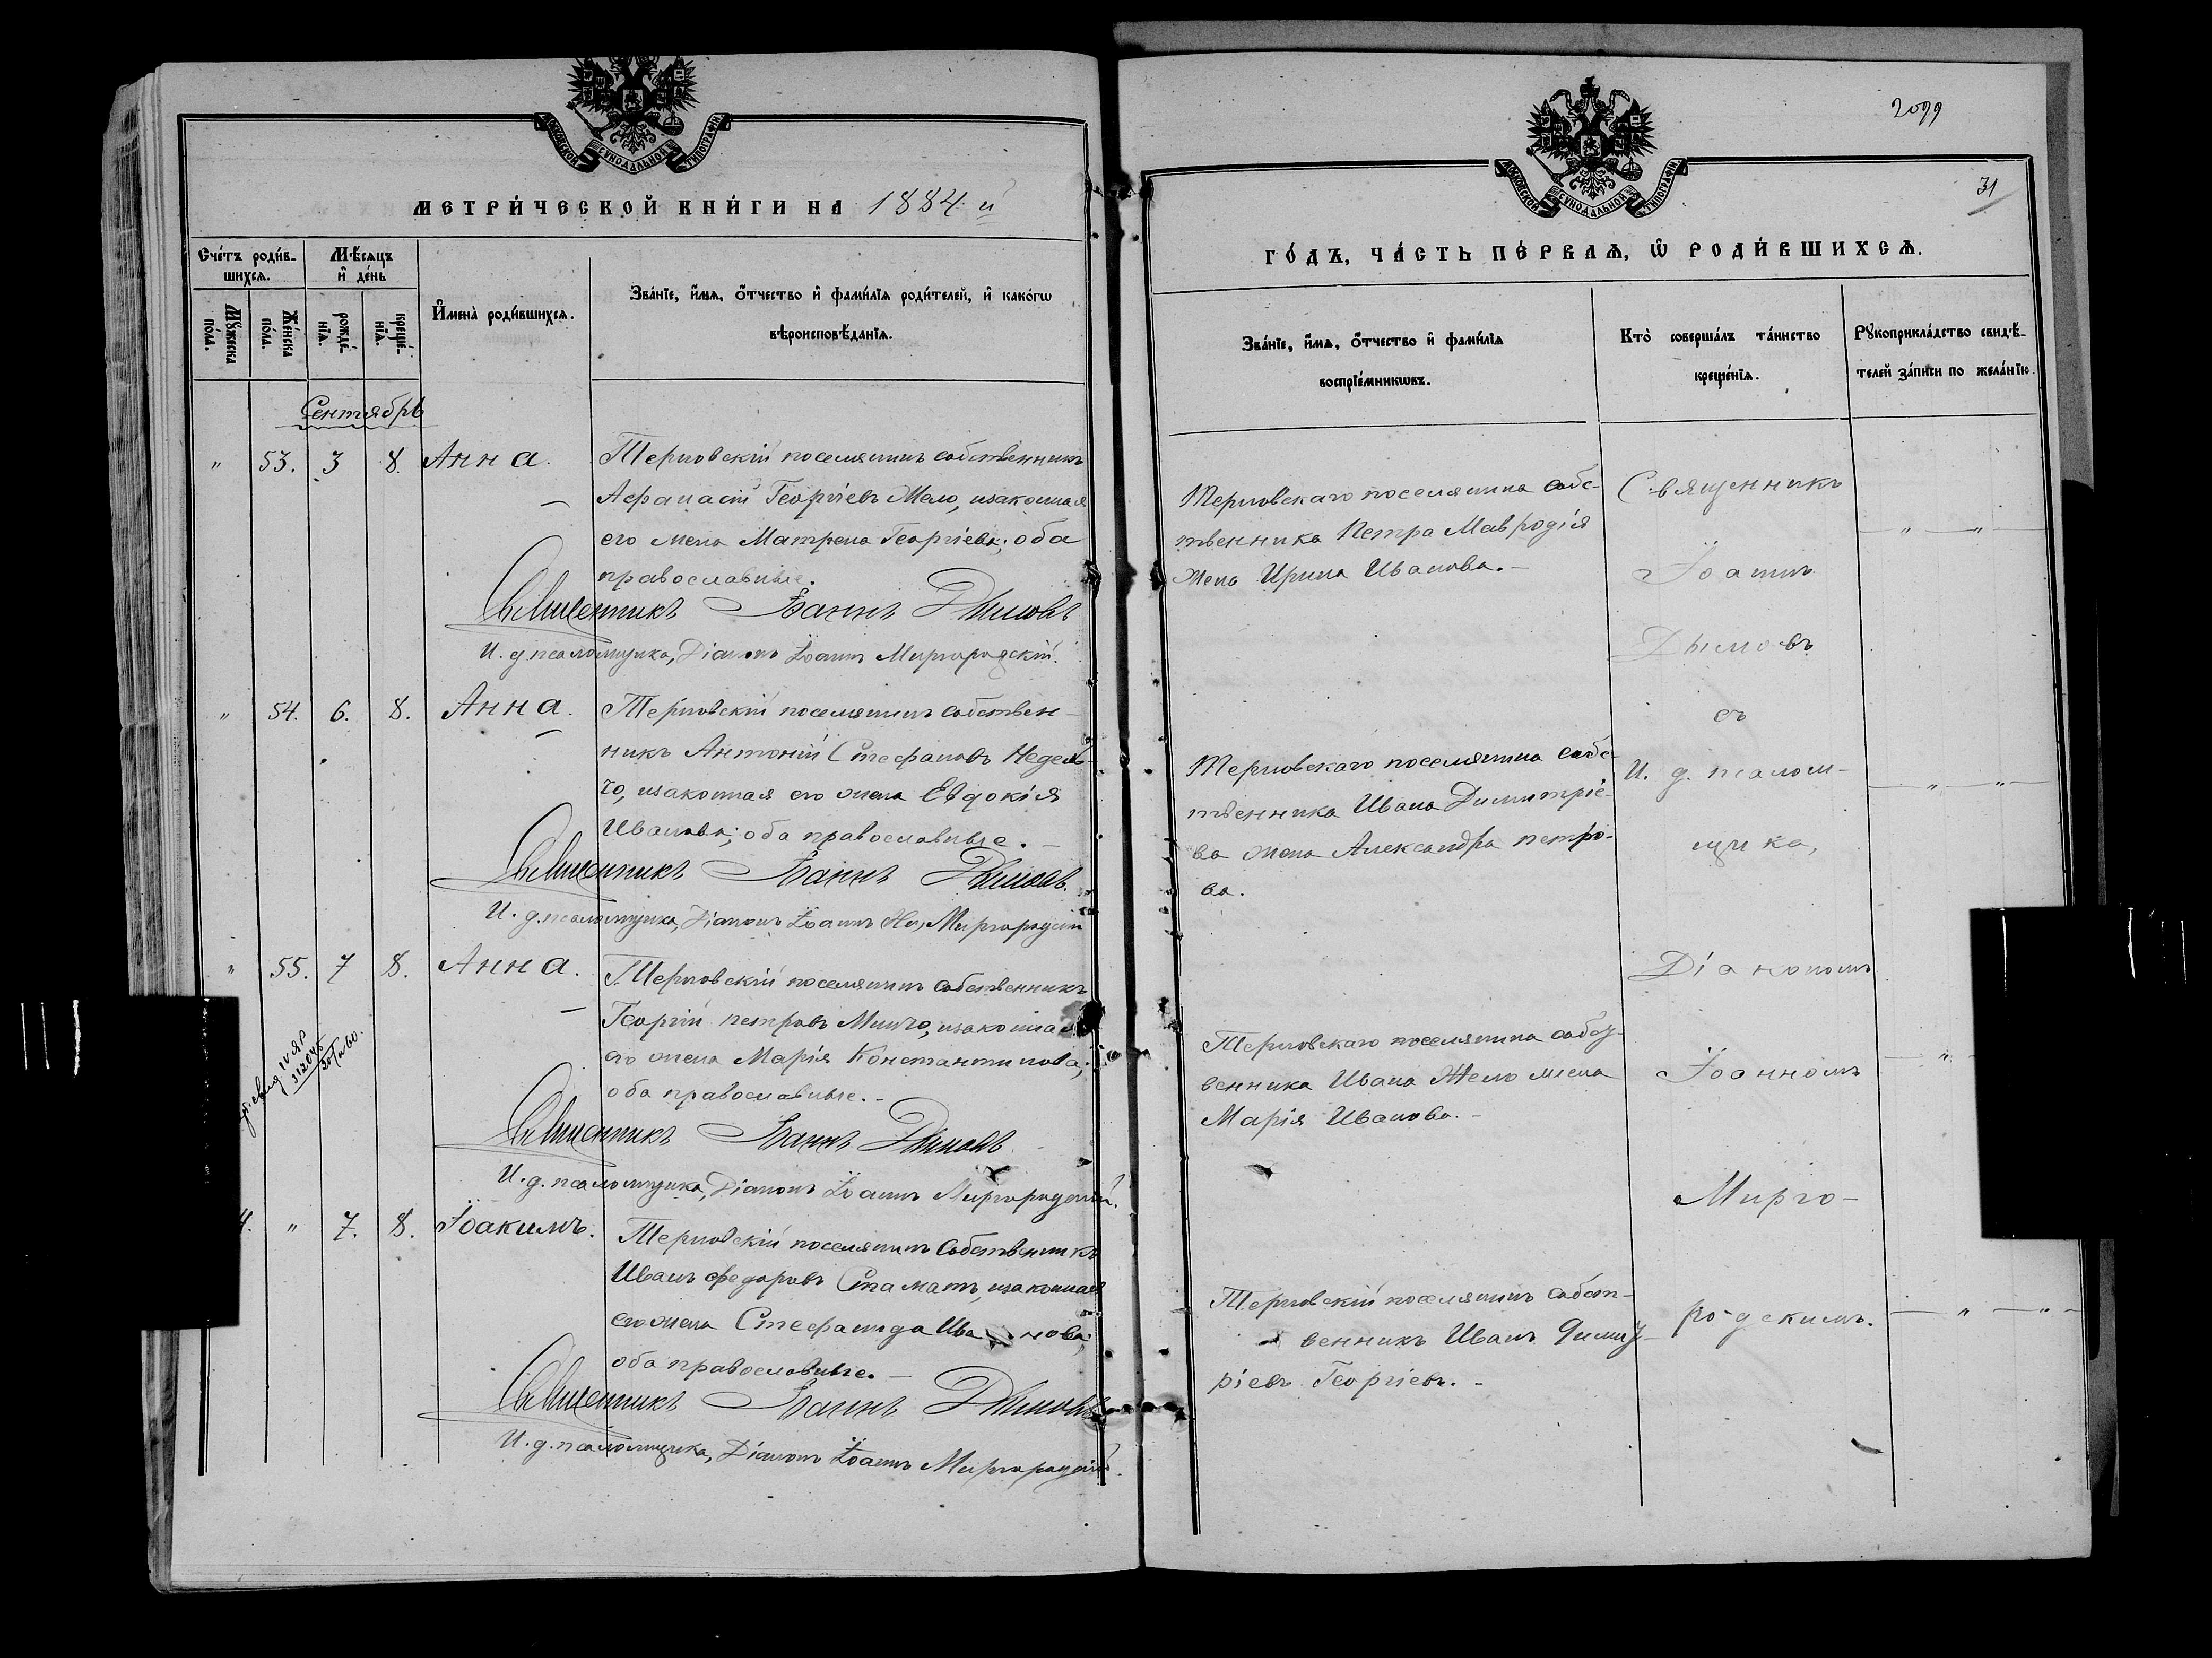 МОСКОВСКОЙ СУНОДАЛЬНОЙ ТИПОГРАФІИ
МЕТРИ́ЧЕСКОЙ КНИ́ГИ НА 1884 й
Сче́тъ роди́в-
шихся.
Мѣ́сяцъ
и҆ де́нь
Мꙋ́жеска
по́ла.
Же́нска
по́ла.
рожде́-
нїя.
креще́-
нїя.
И҆мена̀ роди́вшихся.
Зва́нїе, и҆́мя, ѻ҆́тчество и҆ фами́лїя роди́телей, и҆ како́гѡ
вѣроисповѣ́данїя.
Сентябрь
" 53. 3 8. Анна.
Терновскій поселянинъ собственникъ
Афанасій Георгіевъ Мело, изаконная
его жена Матрена Георгіева; оба
православные.
Священникъ Іоаннъ Дымовъ
И. д. псаломщика, Діаконъ Іоаннъ Миргородскій.
" 54. 6. 8. Анна.
Терновскій поселянинъ собствен-
никъ Антоній Стефановъ Недель-
чо, изаконная его жена Евдокія
Иванова; оба православные.
Священникъ Іоаннъ Дымовъ.
И. д. псаломщика, Діаконъ Іоаннъ Миргородскій
" 55. 7 8. Анна.
Терновскій поселянинъ собственникъ
Георгій Петровъ Минчо, изаконная
его жена Марія Константинова;
оба православные.
Священникъ Іоаннъ Дымовъ
И. д. псаломщика, Діаконъ Іоаннъ Миргородскій.
4. " 7. 8. Іоакимъ.
Терновскій поселянинъ Собственникъ
Иванъ Федоровъ Стаматъ, изаконная
его жена Стефанида Иванова;
оба православные.
Священникъ Іоаннъ Дымовъ
И. д. псаломщика, Діаконъ Іоаннъ Миргородскій.
2099
31
МОСКОВСКОЙ СУНОДАЛЬНОЙ ТИПОГРАФІИ
ГО́ДЪ, ЧА́СТЬ ПЕ́РВАЯ, Ѡ҆ РОДИ́ВШИХСЯ.
Зва́нїе, и҆́мя, ѻ҆́тчество и҆ фами́лїя
воспрїе́мникѡвъ.
Кто̀ соверша́лъ та́инство
креще́нїя.
Рꙋкоприкла́дство свидѣ́-
телей за́писи по жела́нїю.
Терновскаго поселянина собс-
твенника Петра Мавродія
жена Ирина Иванова.
Терновскаго поселянина собс-
твенника Ивана Димитріе-
ва жена Александра Петро-
ва.
Терновскаго поселянина собст-
венника Ивана Мело жена
Марія Иванова.
Терновскій поселянинъ собст-
венникъ Иванъ Димит-
ріевъ Георгіевъ.
Священникъ
Іоаннъ
Дымовъ
съ
И. д. псалом-
щика,
Діакономъ
Іоанномъ
Мирго-
родскимъ.